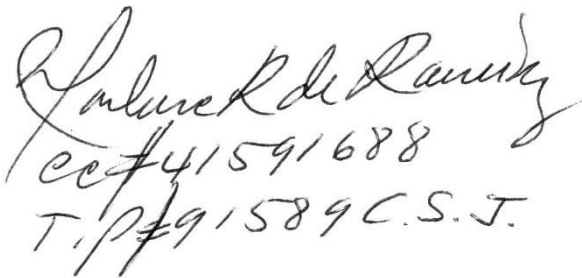 Marlene R de Ramirez
cc#41591688
T.P#91589 C.S.J.